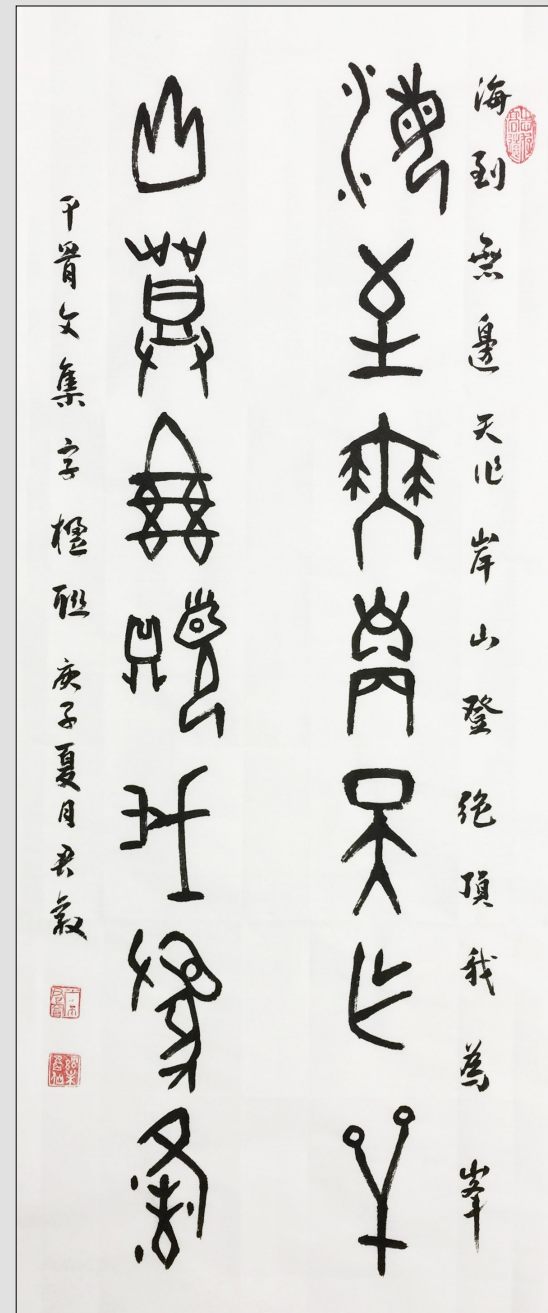 海到無邊天作岸山登絕頂我為峯
海到無邊天作岸
山登絕頂我為峯
甲骨文集字楹聯 庚子夏月君毅